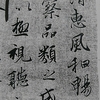 清惠風和暢
察品類之盛
以極視聽